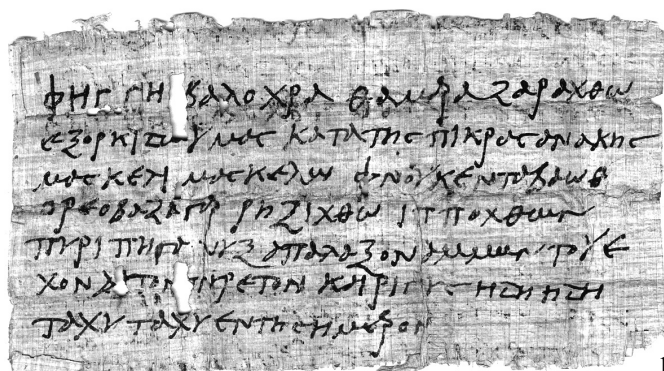 φηγγη βαλοχρα θαμρα ζαραχθω
εξορκιζω υμας κατα της πικρας ανακης
μασκελι μασκελω φνουκενταβαωθ
ορεοβαζαγρα ρηξιχθω ιπποχθων
πυριπηγανυξ απαλαξον αμμων του ε
χοντα τον πυρετον και ριγους ηδη ηδη
ταχυ ταχυ εν τη σημερον